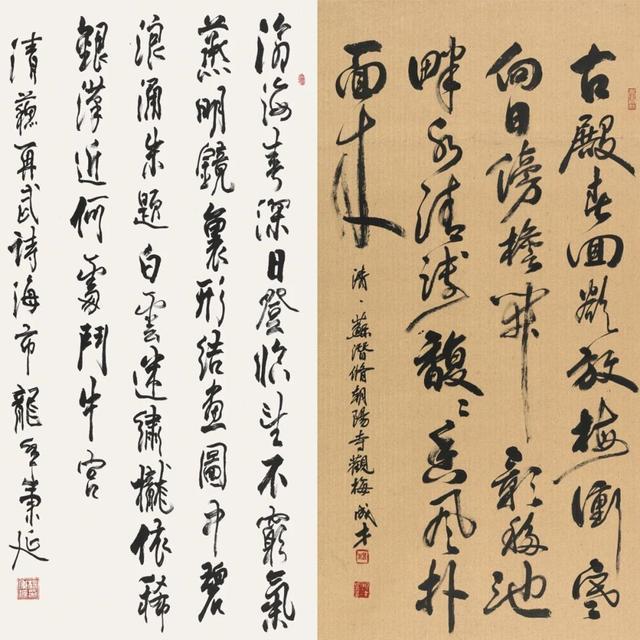 古殿春回欲放梅衝寒
向日傍檐開影移池
畔水清淺馥〻香風扑
面來
清、蘇潛修朝陽寺觀梅 成才
滄海春深日登臨望不窮氣
蒸明鏡裏形結畫圖中碧
浪涌朱題白雲迷繡櫳依稀
銀漢近何處鬥牛宮
清蘇再武詩海市龍年秉延